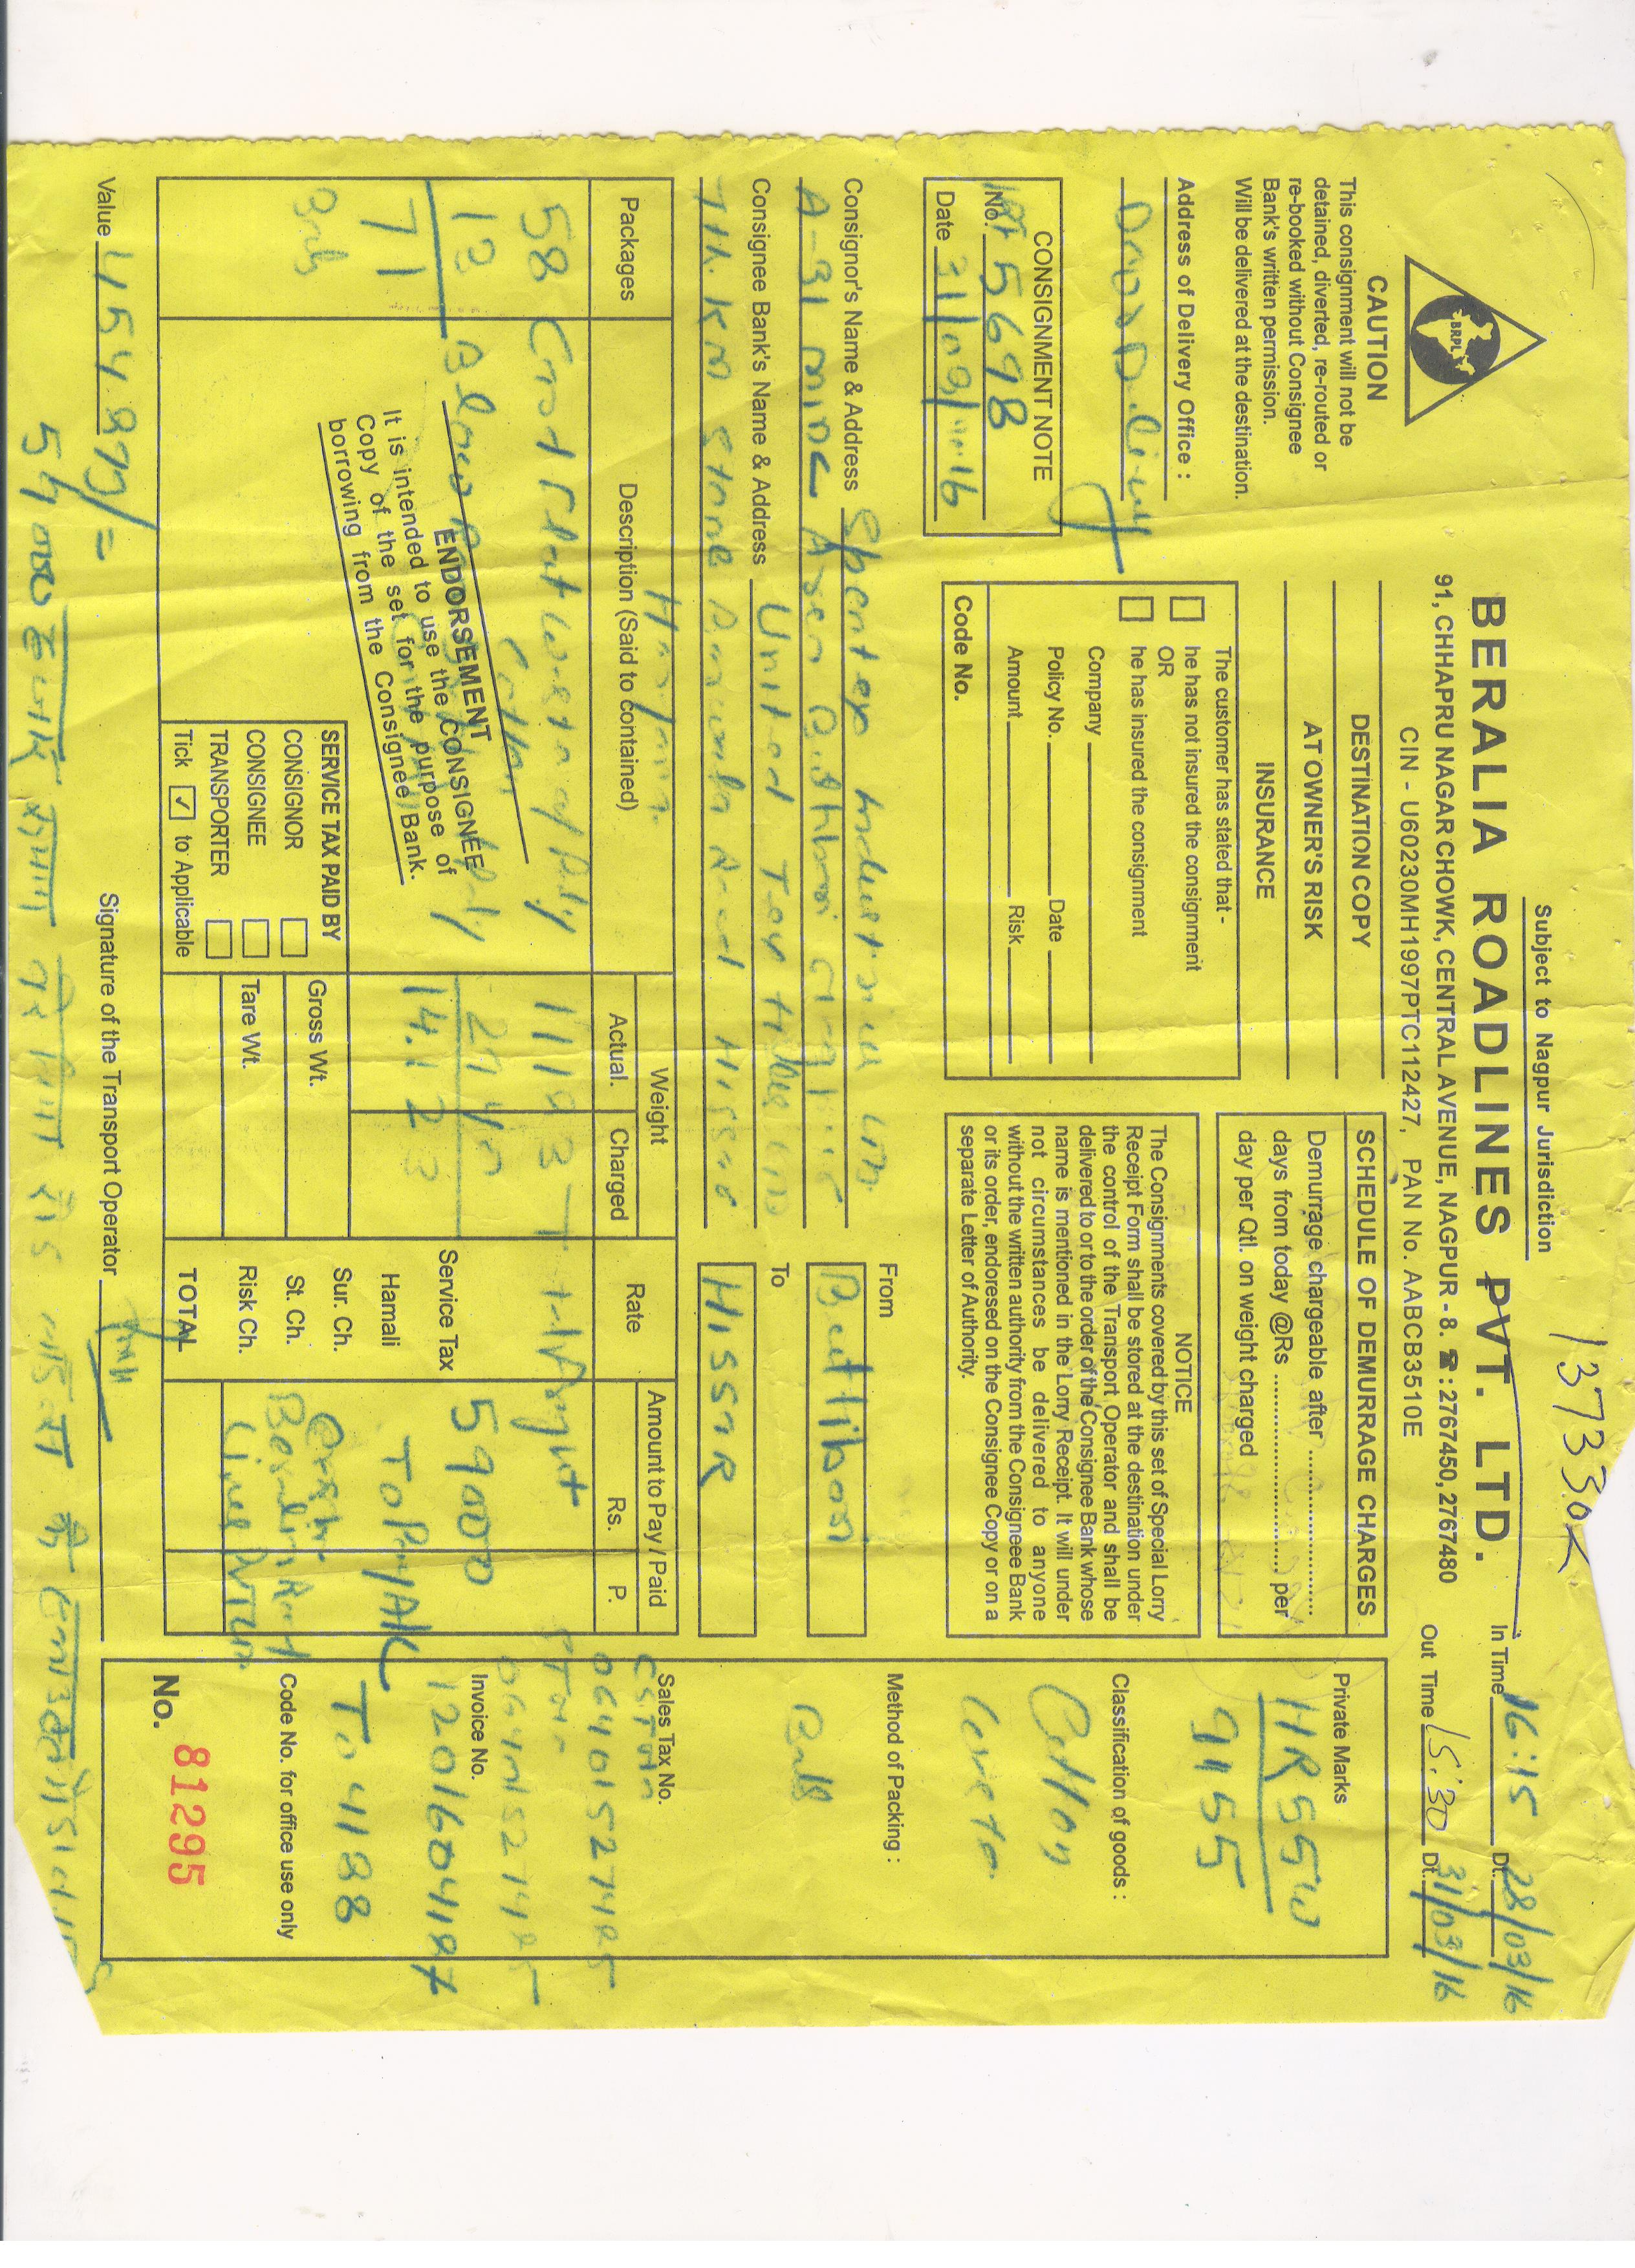 137330
Subject to Nagpur Jurisdiction
BERALIA ROADLINES PVT. LTD.
91, CHHAPRU NAGAR CHOWK, CENTRAL AVENUE, NAGPUR - 8. ☎ : 2767450, 2767480
CIN - U60230MH1997PTC112427, PAN No. AABCB3510E
In Time 16:15 Dt. 28/03/16
Out Time 15:30 Dt. 31/03/16
BRPL
CAUTION
This consignment will not be
detained, diverted, re-routed or
re-booked without Consignee
Bank's written permission.
Will be delivered at the destination.
Address of Delivery Office :
CONSIGNMENT NOTE
No. 5698
Date 31/03/16
DESTINATION COPY
AT OWNER'S RISK
INSURANCE
The customer has stated that -
he has not insured the consignment
OR
he has insured the consignment
Company
Policy No. Date
Amount Risk
Code No.
SCHEDULE OF DEMURRAGE CHARGES
Demurrage chargeable after
days from today @Rs per
day per Qtl. on weight charged
NOTICE
The Consignments covered by this set of Special Lorry
Receipt Form shall be stored at the destination under
the control of the Transport Operator and shall be
delivered to or to the order of the Consignee Bank whose
name is mentioned in the Lorry Receipt. It will under
not circumstances be delivered to anyone
without the written authority from the Consigneee Bank
or its order, endoresed on the Consignee Copy or on a
separate Letter of Authority.
Private Marks
HR55W
9155
Classification of goods :
Cotton
Method of Packing :
Consignor's Name & Address Spentex Industries LTD.
A-31 MIDC Area Buttibori
Consignee Bank's Name & Address United Textiles
7th. KM Stone Barwala Road Hissar
Haryana
From
Buttibori
To
HISSAR
Packages
Description (Said to contained)
Weight
Actual. Charged
Rate
Amount to Pay / Paid
Rs. P.
58 Card Flat Waste of Poly
Cotton
13 Blow Room
71
11183
2940
14.123
59000
To Pay A/C
Beralia Road
Line PVT LTD
Service Tax
Hamali
Sur. Ch.
St. Ch.
Risk Ch.
TOTAL
ENDORSEMENT
It is intended to use the CONSIGNEE
Copy of the set for the purpose of
borrowing from the Consignee Bank.
SERVICE TAX PAID BY
CONSIGNOR
CONSIGNEE
TRANSPORTER
Tick ✓ to Applicable
Gross Wt.
Tare Wt.
Sales Tax No.
Invoice No.
1201604187
To 4188
Code No. for office use only
No. 81295
Value
Signature of the Transport Operator
59000 हजार रुपए